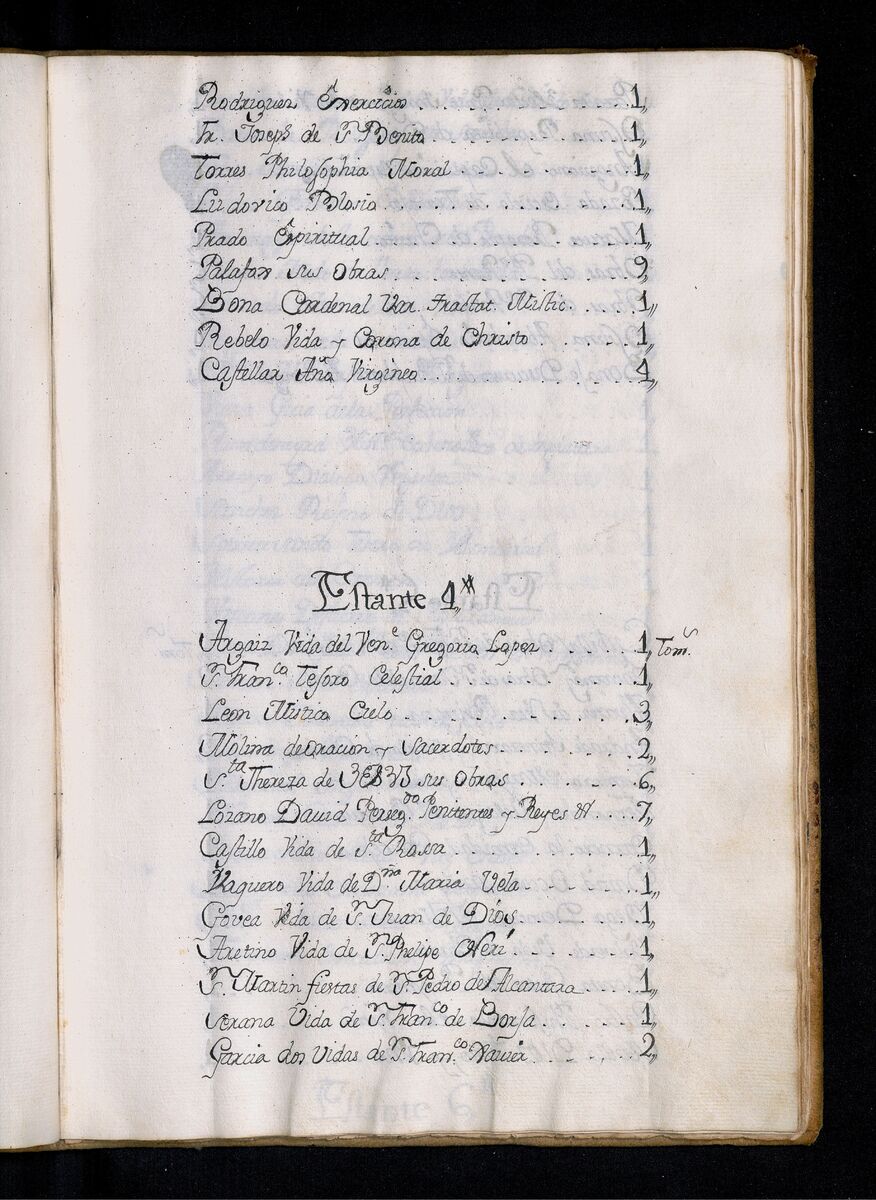 Rodriguez Exercicios . . . . . . 1,,
Fr. Joseph de S. Benito . . . . . . 1,,
Torres Philosophia Moral . . . . . 1,,
Ludovico Blosio . . . . . . . . 1,,
Prado Espiritual . . . . . . . 1,,
Palafox sus obras . . . . . . . 9,,
Bona Cardenal Var. tractat. Mistic. . . . 1,,
Rebelo Vida y Corona de Christo . . . . 1,,
Castellar Año Virgineo . . . . . . 4,,
Estante 4,,
Argaiz Vida del Ven.e Gregorio Lopez . . . . . 1,, Tom.s
S. Fran.co Tesoro Celestial . . . . . . 1,,
Leon Mistico Cielo . . . . . . . 3,,
Molina de oracion y Sacerdotes . . . . . 2,,
S.ta Thereza de JESUS sus obras . . . . . 6,,
Lozano David Perseg.do Penitentes y Reyes &. . . . . 7,,
Castillo Vida de S.ta Rossa . . . . . . 1,,
Vaquero Vida de D.ña Maria Vela . . . . . 1,,
Govea Vida de S. Juan de Dios . . . . . 1,,
Aretino Vida de S. Phelipe Neri . . . . . 1,,
S. Martin fiestas de S. Pedro de Alcantara . . . . 1,,
Verana Vida de S. Fran.co de Borja . . . . . 1,,
Garcia dos Vidas de S. Fran.co Xavier . . . . . 2,,